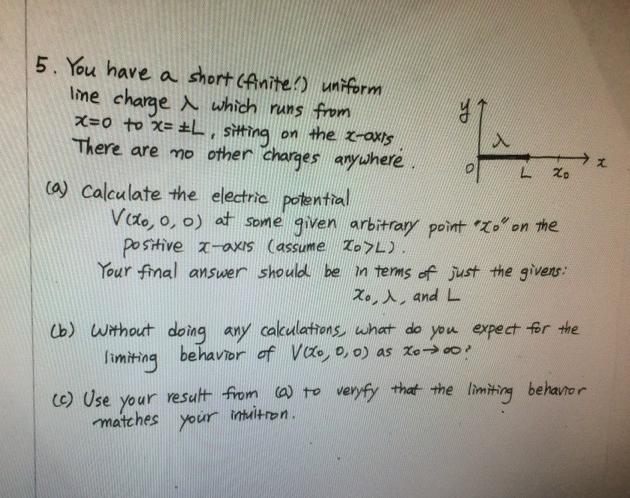 5. You have a short (finite!) uniform
line charge λ which runs from
x=0 to x= ±L, sitting on the x-axis.
There are no other charges anywhere.
y
λ
0
L
x₀
x
(a) Calculate the electric potential
V(x₀, 0, 0) at some given arbitrary point "x₀" on the
positive x-axis (assume x₀>L).
Your final answer should be in terms of just the givens:
x₀, λ, and L
(b) Without doing any calculations, what do you expect for the
limiting behavior of V(x₀, 0, 0) as x₀→∞?
(c) Use your result from (a) to veryfy that the limiting behavior
matches your intuition.